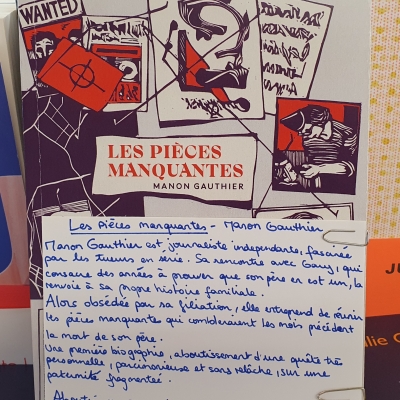 WANTED
LES PIÈCES
MANQUANTES
MANON GAUTHIER
Les pièces manquantes - Manon Gauthier
Manon Gauthier est journaliste indépendante, fascinée
par les tueurs en série. Sa rencontre avec Gary, qui
consacre des années à prouver que son père en est un, la
renvoie à sa propre histoire familiale.
Alors obsédée par sa filiation, elle entreprend de réunir
les pièces manquante qui combleraient les mois précédant
la mort de son père.
Une première biographie, aboutissement d'une quête très
personnelle, parcimonieuse et sans relâche, sur une
paternité fragmentée.
JU
lie G